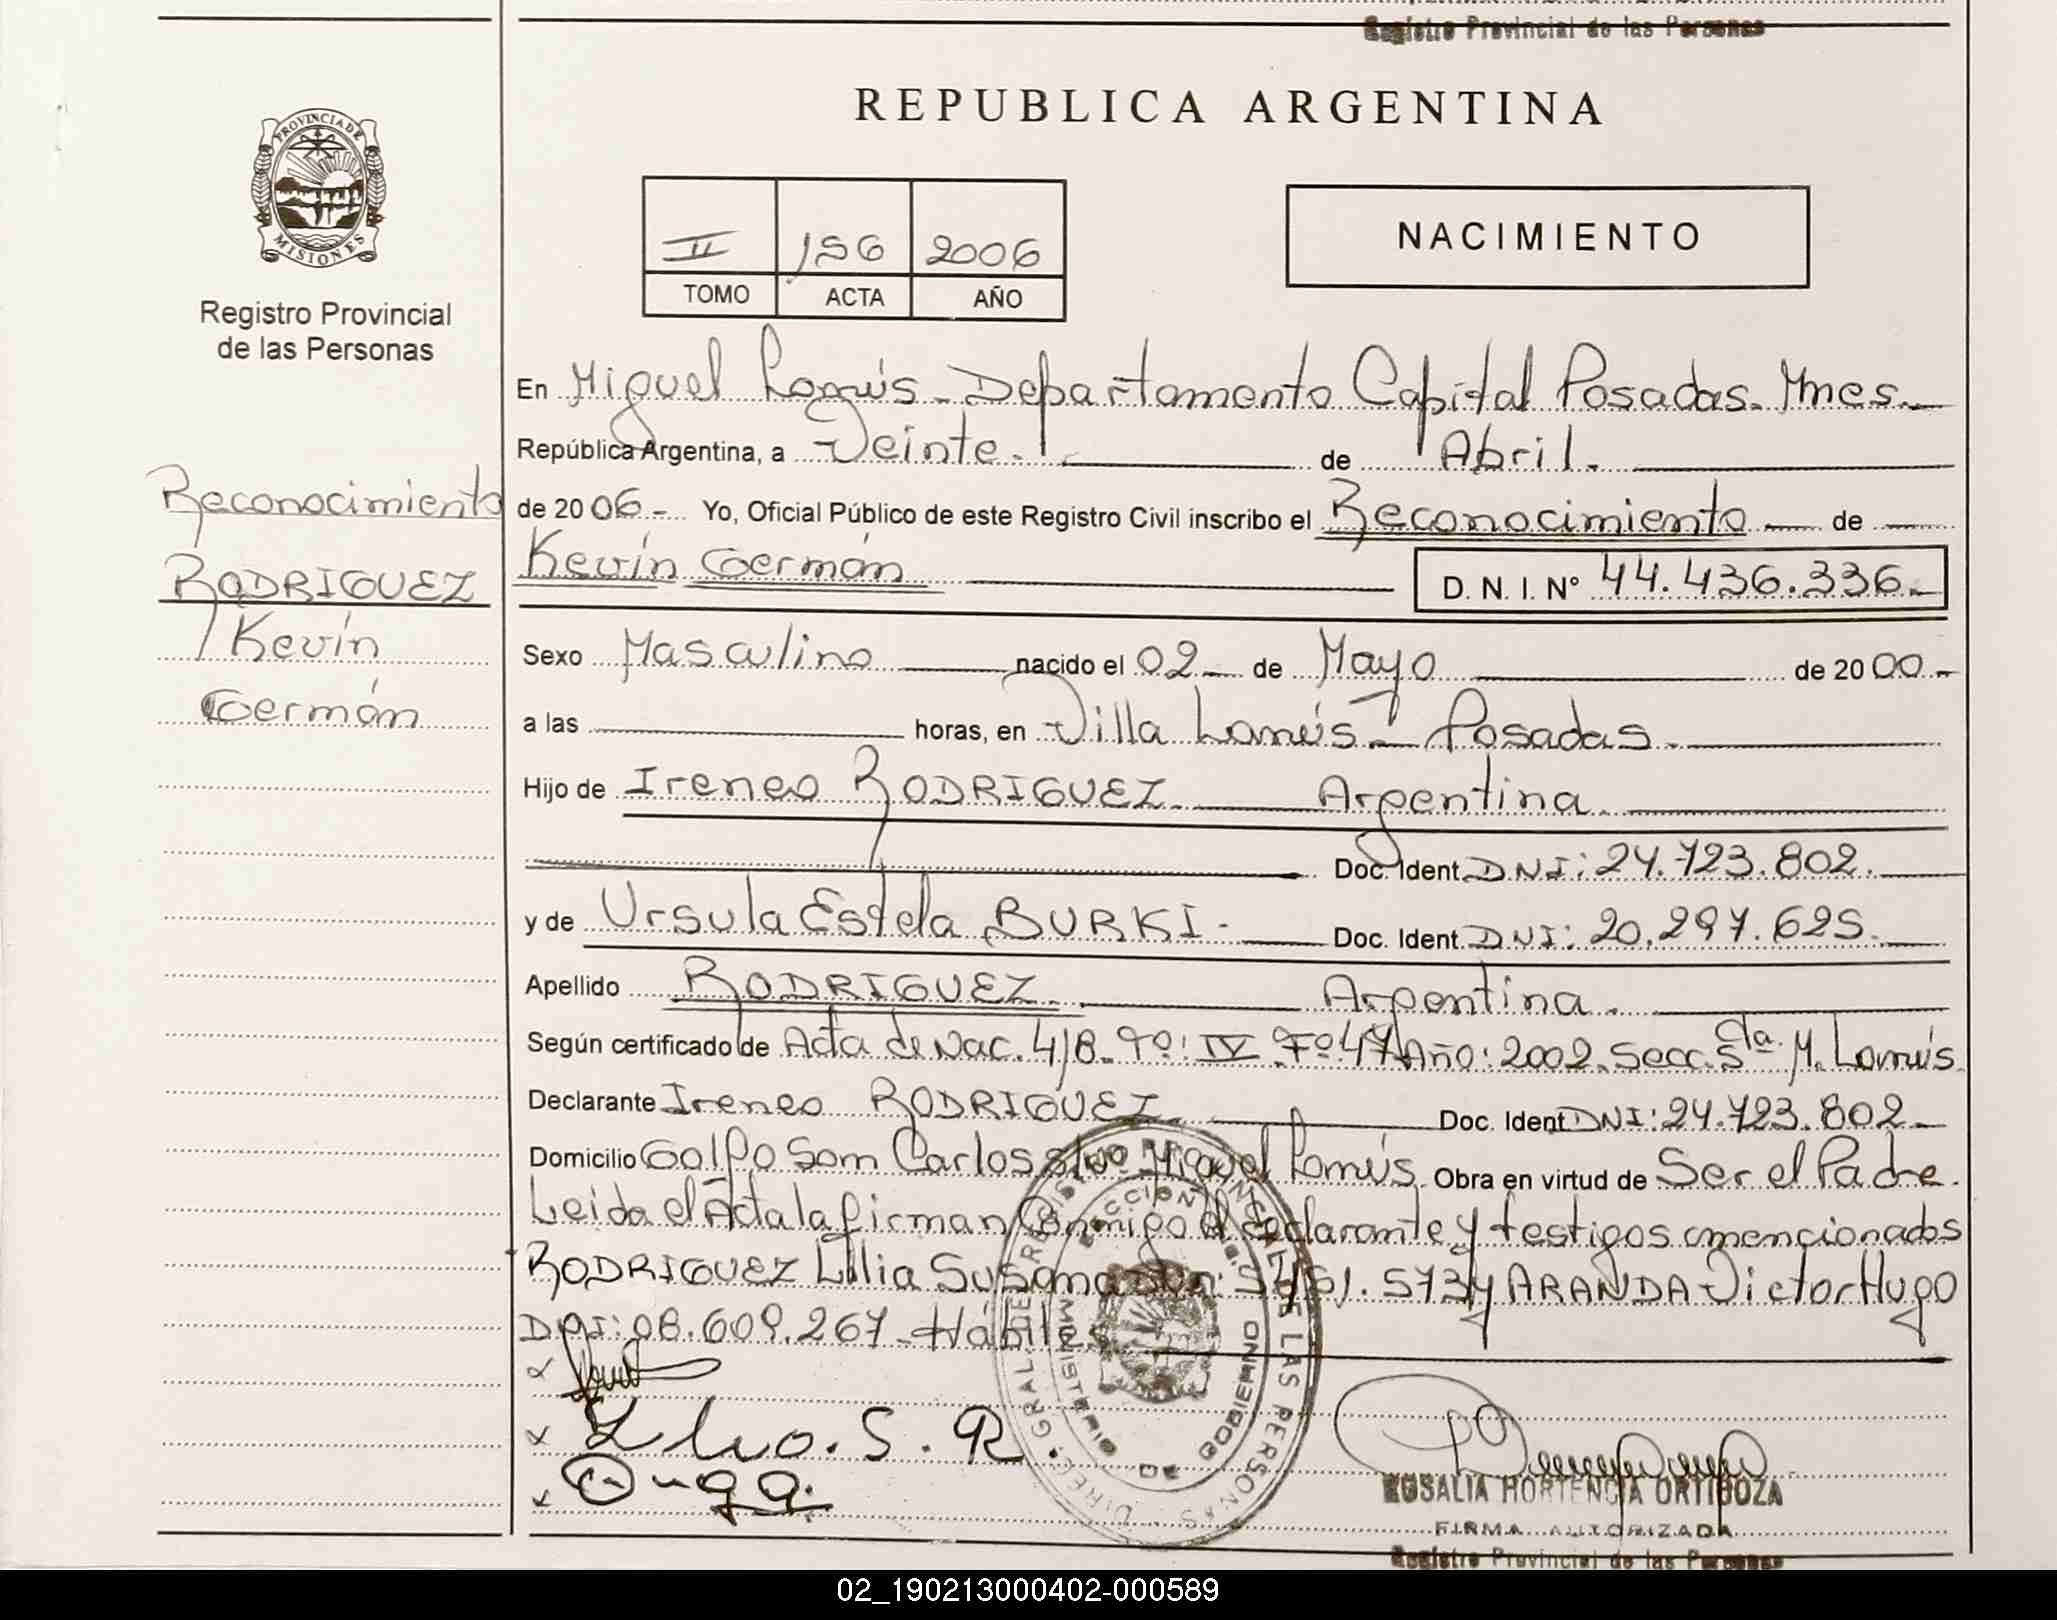 Registro Provincial de las Personas
REPUBLICA ARGENTINA
PROVINCIA DE
MISIONES
Registro Provincial
de las Personas
II 156 2006
TOMO ACTA AÑO
NACIMIENTO
En Miguel Lanús - Departamento Capital Posadas - Mnes.
República Argentina, a Veinte. de Abril.
de 2006.- Yo, Oficial Público de este Registro Civil inscribo el Reconocimiento de
Kevín Germán D. N. I. Nº 44.436.336.
Reconocimiento
RODRIGUEZ
Kevín
Germán
Sexo Masculino nacido el 02 de Mayo de 2000.-
a las horas, en Villa Lanús - Posadas.
Hijo de Ireneo RODRIGUEZ Argentina.
Doc. Ident. DNI: 24.723.802.
y de Ursula Estela BURKI. Doc. Ident. DNI: 20.297.625.
Apellido RODRIGUEZ. Argentina.
Según certificado de Acta de Nac. 418. Tº: IV Fº 47 Año: 2002. Secc. 5ta. M. Lanús
Declarante Ireneo RODRIGUEZ Doc. Ident DNI: 24.723.802
Domicilio Golfo San Carlos s/nº Miguel Lanús. Obra en virtud de Ser el Padre.
Leida el Acta la firman Conmigo el declarante y testigos mencionados
RODRIGUEZ Lilia Susana 573 y ARANDA Victor Hugo
DNI: 08.609.267 - Hábiles
DIREC. GRAL. DE REGISTRO PROVINCIAL DE LAS PERSONAS
MINISTERIO DE GOBIERNO
ROSALIA HORTENCIA ORTIGOZA
FIRMA AUTORIZADA
Registro Provincial de las Personas
02_190213000402-000589